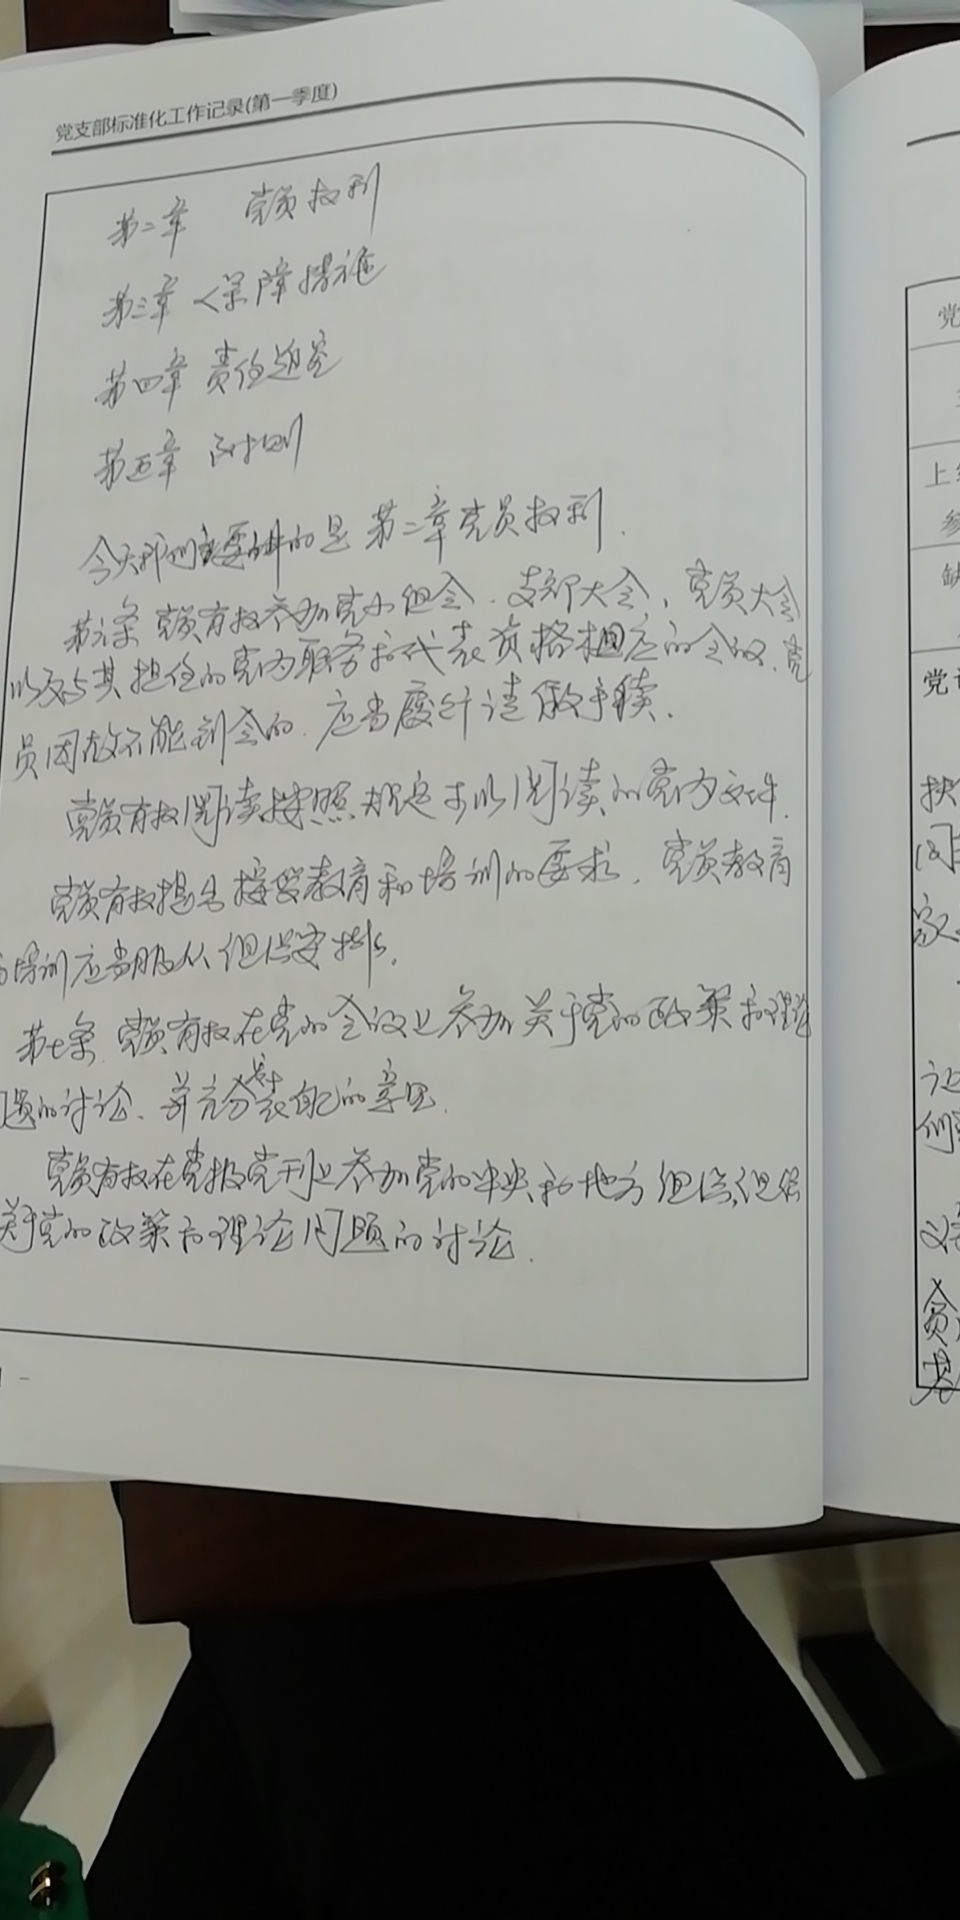 党支部标准化工作记录(第一季度)
第二章 党员权利
第三章 保障措施
第四章 责任追究
第五章 附则
今天我们主要讲的是第二章党员权利.
第六条 党员有权参加党小组会、支部大会、党员大会
以及与其担任的党内职务和代表资格相应的会议、党
员因故不能到会的.应当履行请假手续.
党员有权阅读按照规定可以阅读的党内文件.
党员有权提出接受教育和培训的要求.党员教育
培训应当服从组织安排.
第七条 党员有权在党的会议上参加关于党的政策和理论
问题的讨论、并充分表自己的意见.
党员有权在党报党刊上参加党的中央和地方组织、组织
关于党的政策和理论问题的讨论.
党
上
缺
党
扶
家
让
们
义
贫
基